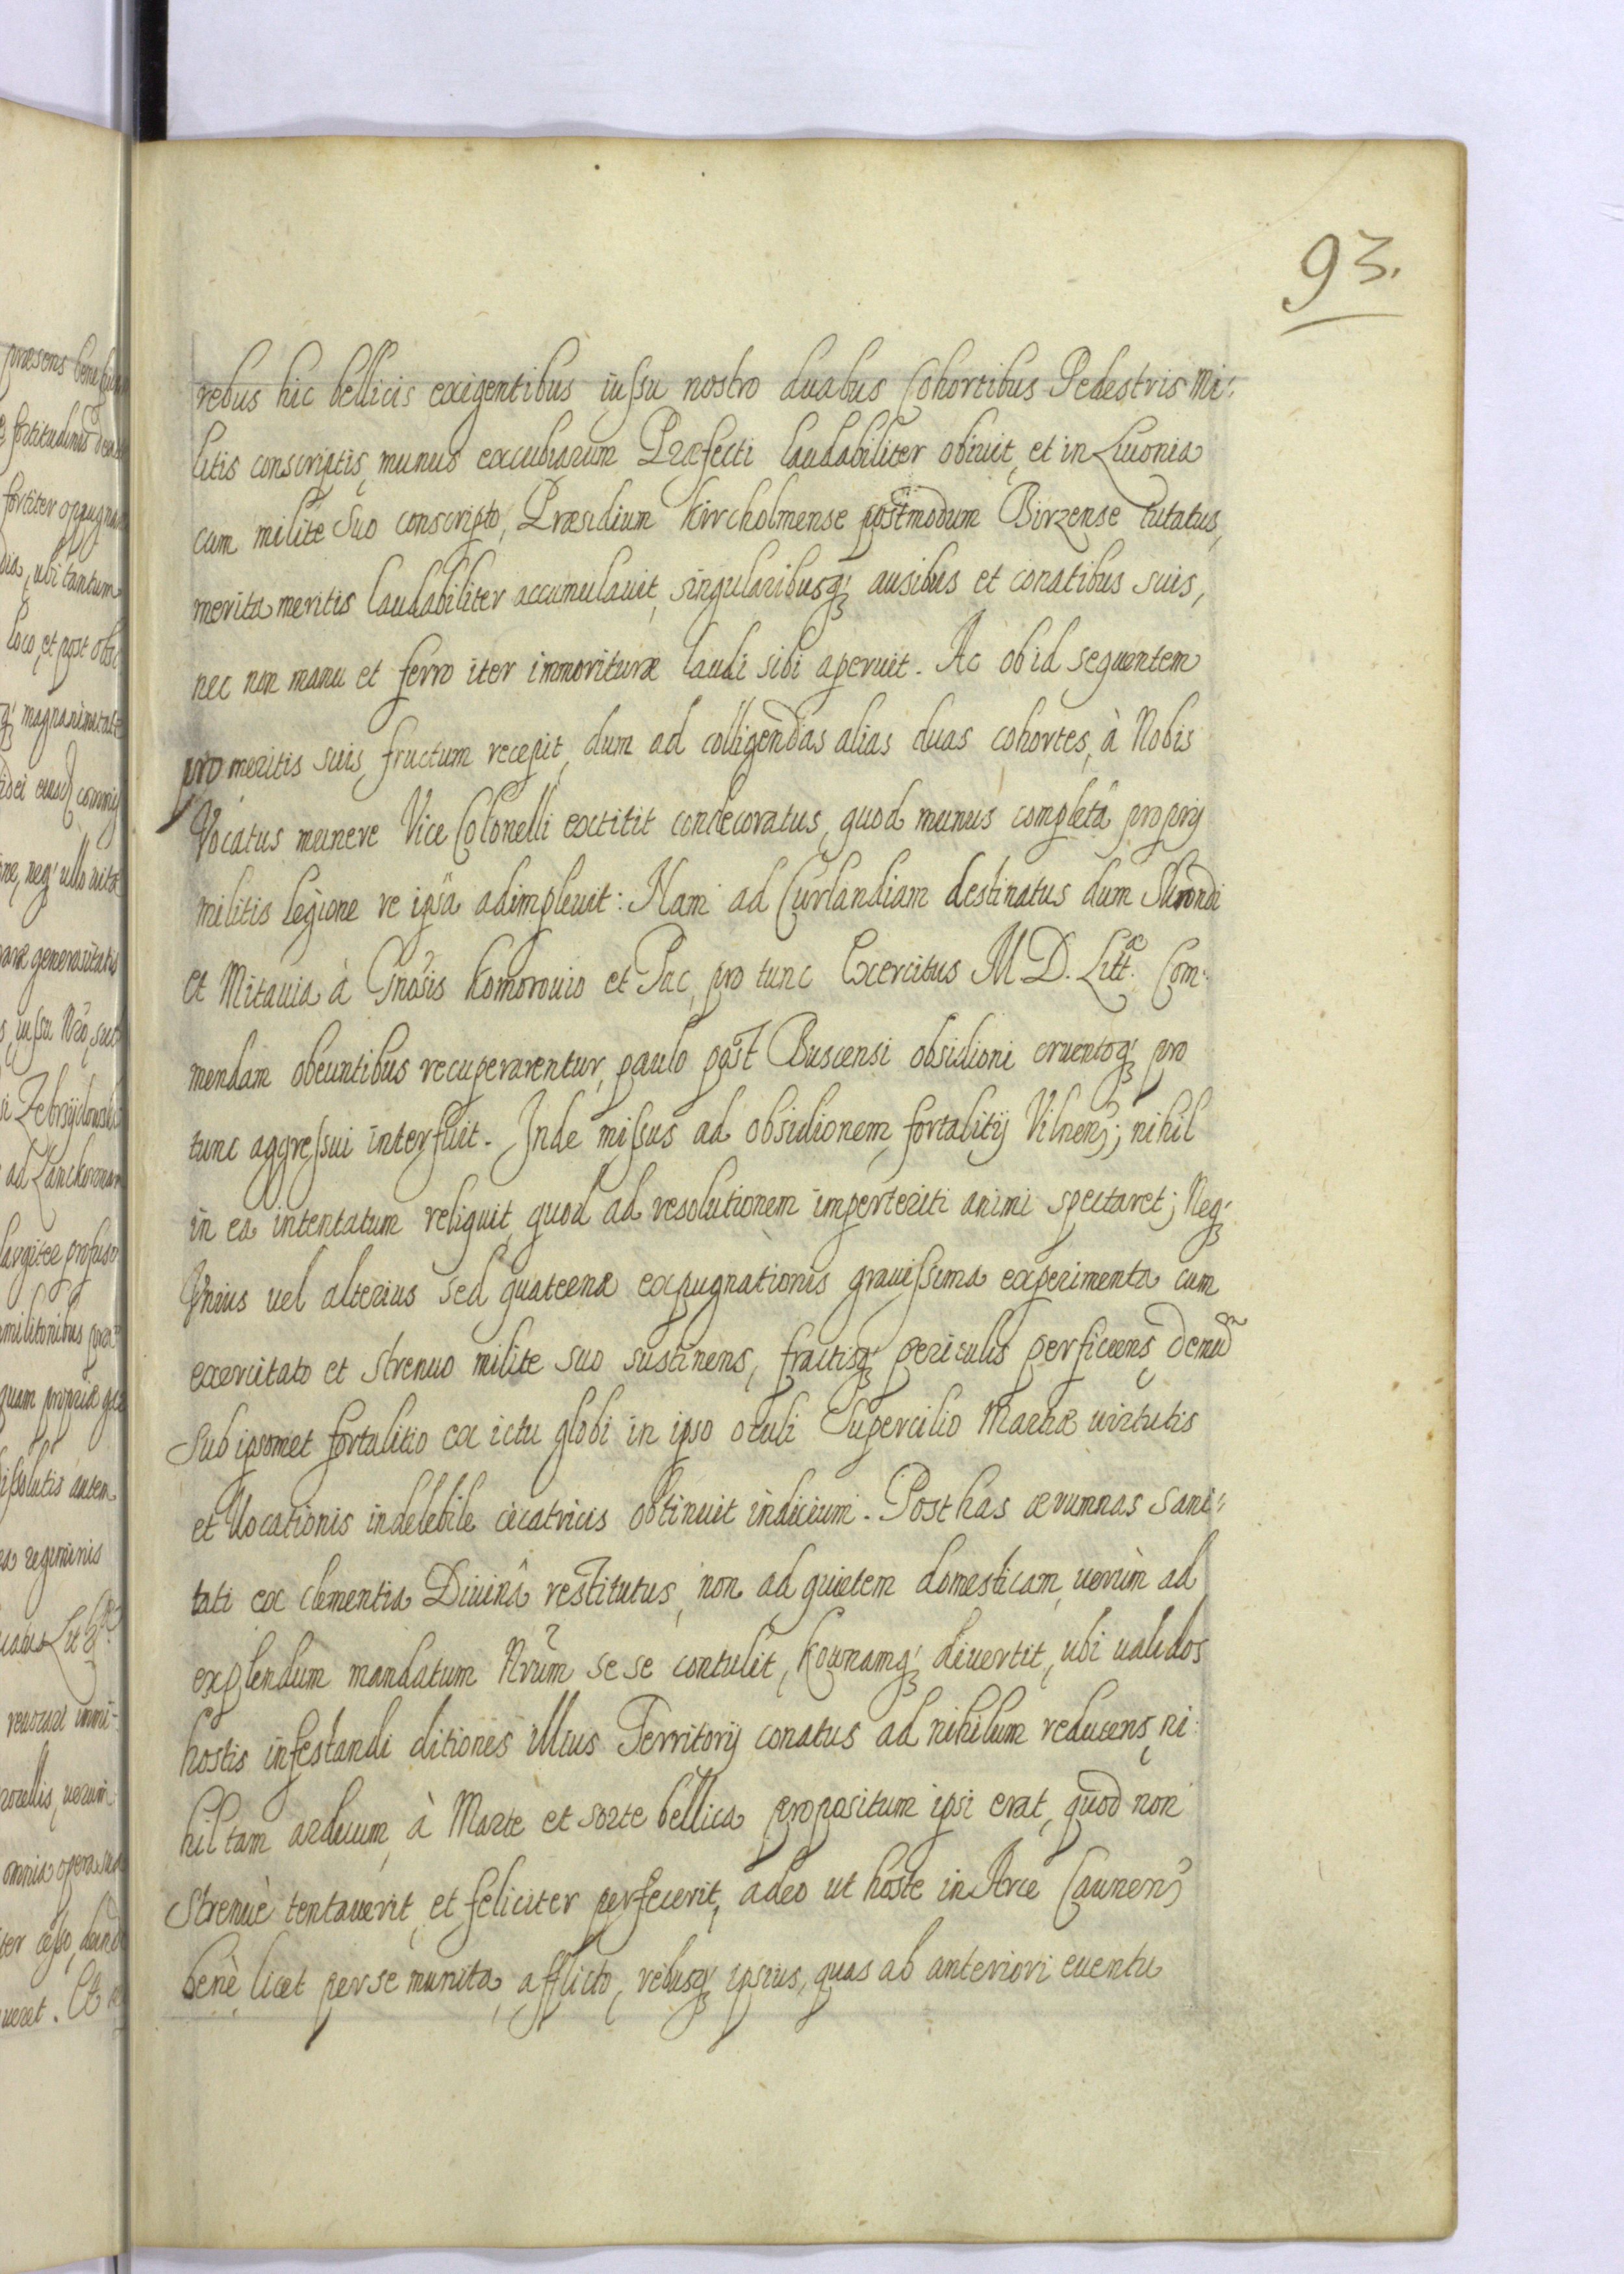 93.
rebus hic bellicis exigentibus iussu nostro duabus Cohortibus Pedestris Mi:
litis conscriptis, munus excubiarum Præfecti laudabiliter obiuit, et in Liuonia
cum milite suo conscripto, Præsidium Kircholmense postmodum Birzense tutatus,
merita meritis laudabiliter accumulauit, singularibusq; ausibus et conatibus suis,
nec non manu et ferro iter immorituræ laudi sibi aperuit. Ac ob id sequentem
pro meritis suis fructum recepit, dum ad colligendas alias duas cohortes, à Nobis
Vocatus munere Vice Colonelli extitit condecoratus, quod munus completâ proprij
militis legione re ipsâ adimpleuit: Nam ad Curlandiam destinatus dum Skrondi
et Mitauia à Gnosis Komorouio et Pac, pro tunc Exercitus M D. Litt.æ Com:
mendam obeuntibus recuperarentur, paulo post Buscensi obsidioni cruentoq; pro
tunc aggressui interfuit. Inde missus ad obsidionem fortalitij Vilnens; nihil
in ea intentatum reliquit, quod ad resolutionem imperteriti animi spectaret; Neq;
Vnius uel alterius sed quaternæ expugnationis grauissima experimenta cum
exercitato et strenuo milite suo sustinens, fractisq; periculis perficiens, demū
sub ipsomet fortalitio ex ictu globi in ipso oculi supercilio Martiæ uirtutis
et Vocationis indelebile cicatricis obtinuit indicium. Post has ærumnas sani:
tati ex clementia Diuinâ restitutus, non ad quietem domesticam, uerùm ad
explendum mandatum Nrūm se se contulit, Kownamq; diuertit, ubi ualidos
hostis infestandi ditiones illius Territorij conatus ad nihilum reducens, ni:
hil tam arduum, à Marte et sorte bellica propositum ipsi erat, quod non
strenuè tentauerit, et feliciter perfecerit, adeo ut hoste in Arce Caunens
benè licet per se munita, afflicto, rebusq; ipsius, quas ab anteriori euentu